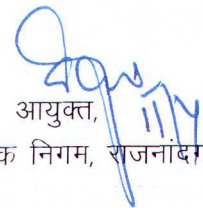 आयुक्त,
क निगम, राजनांदग